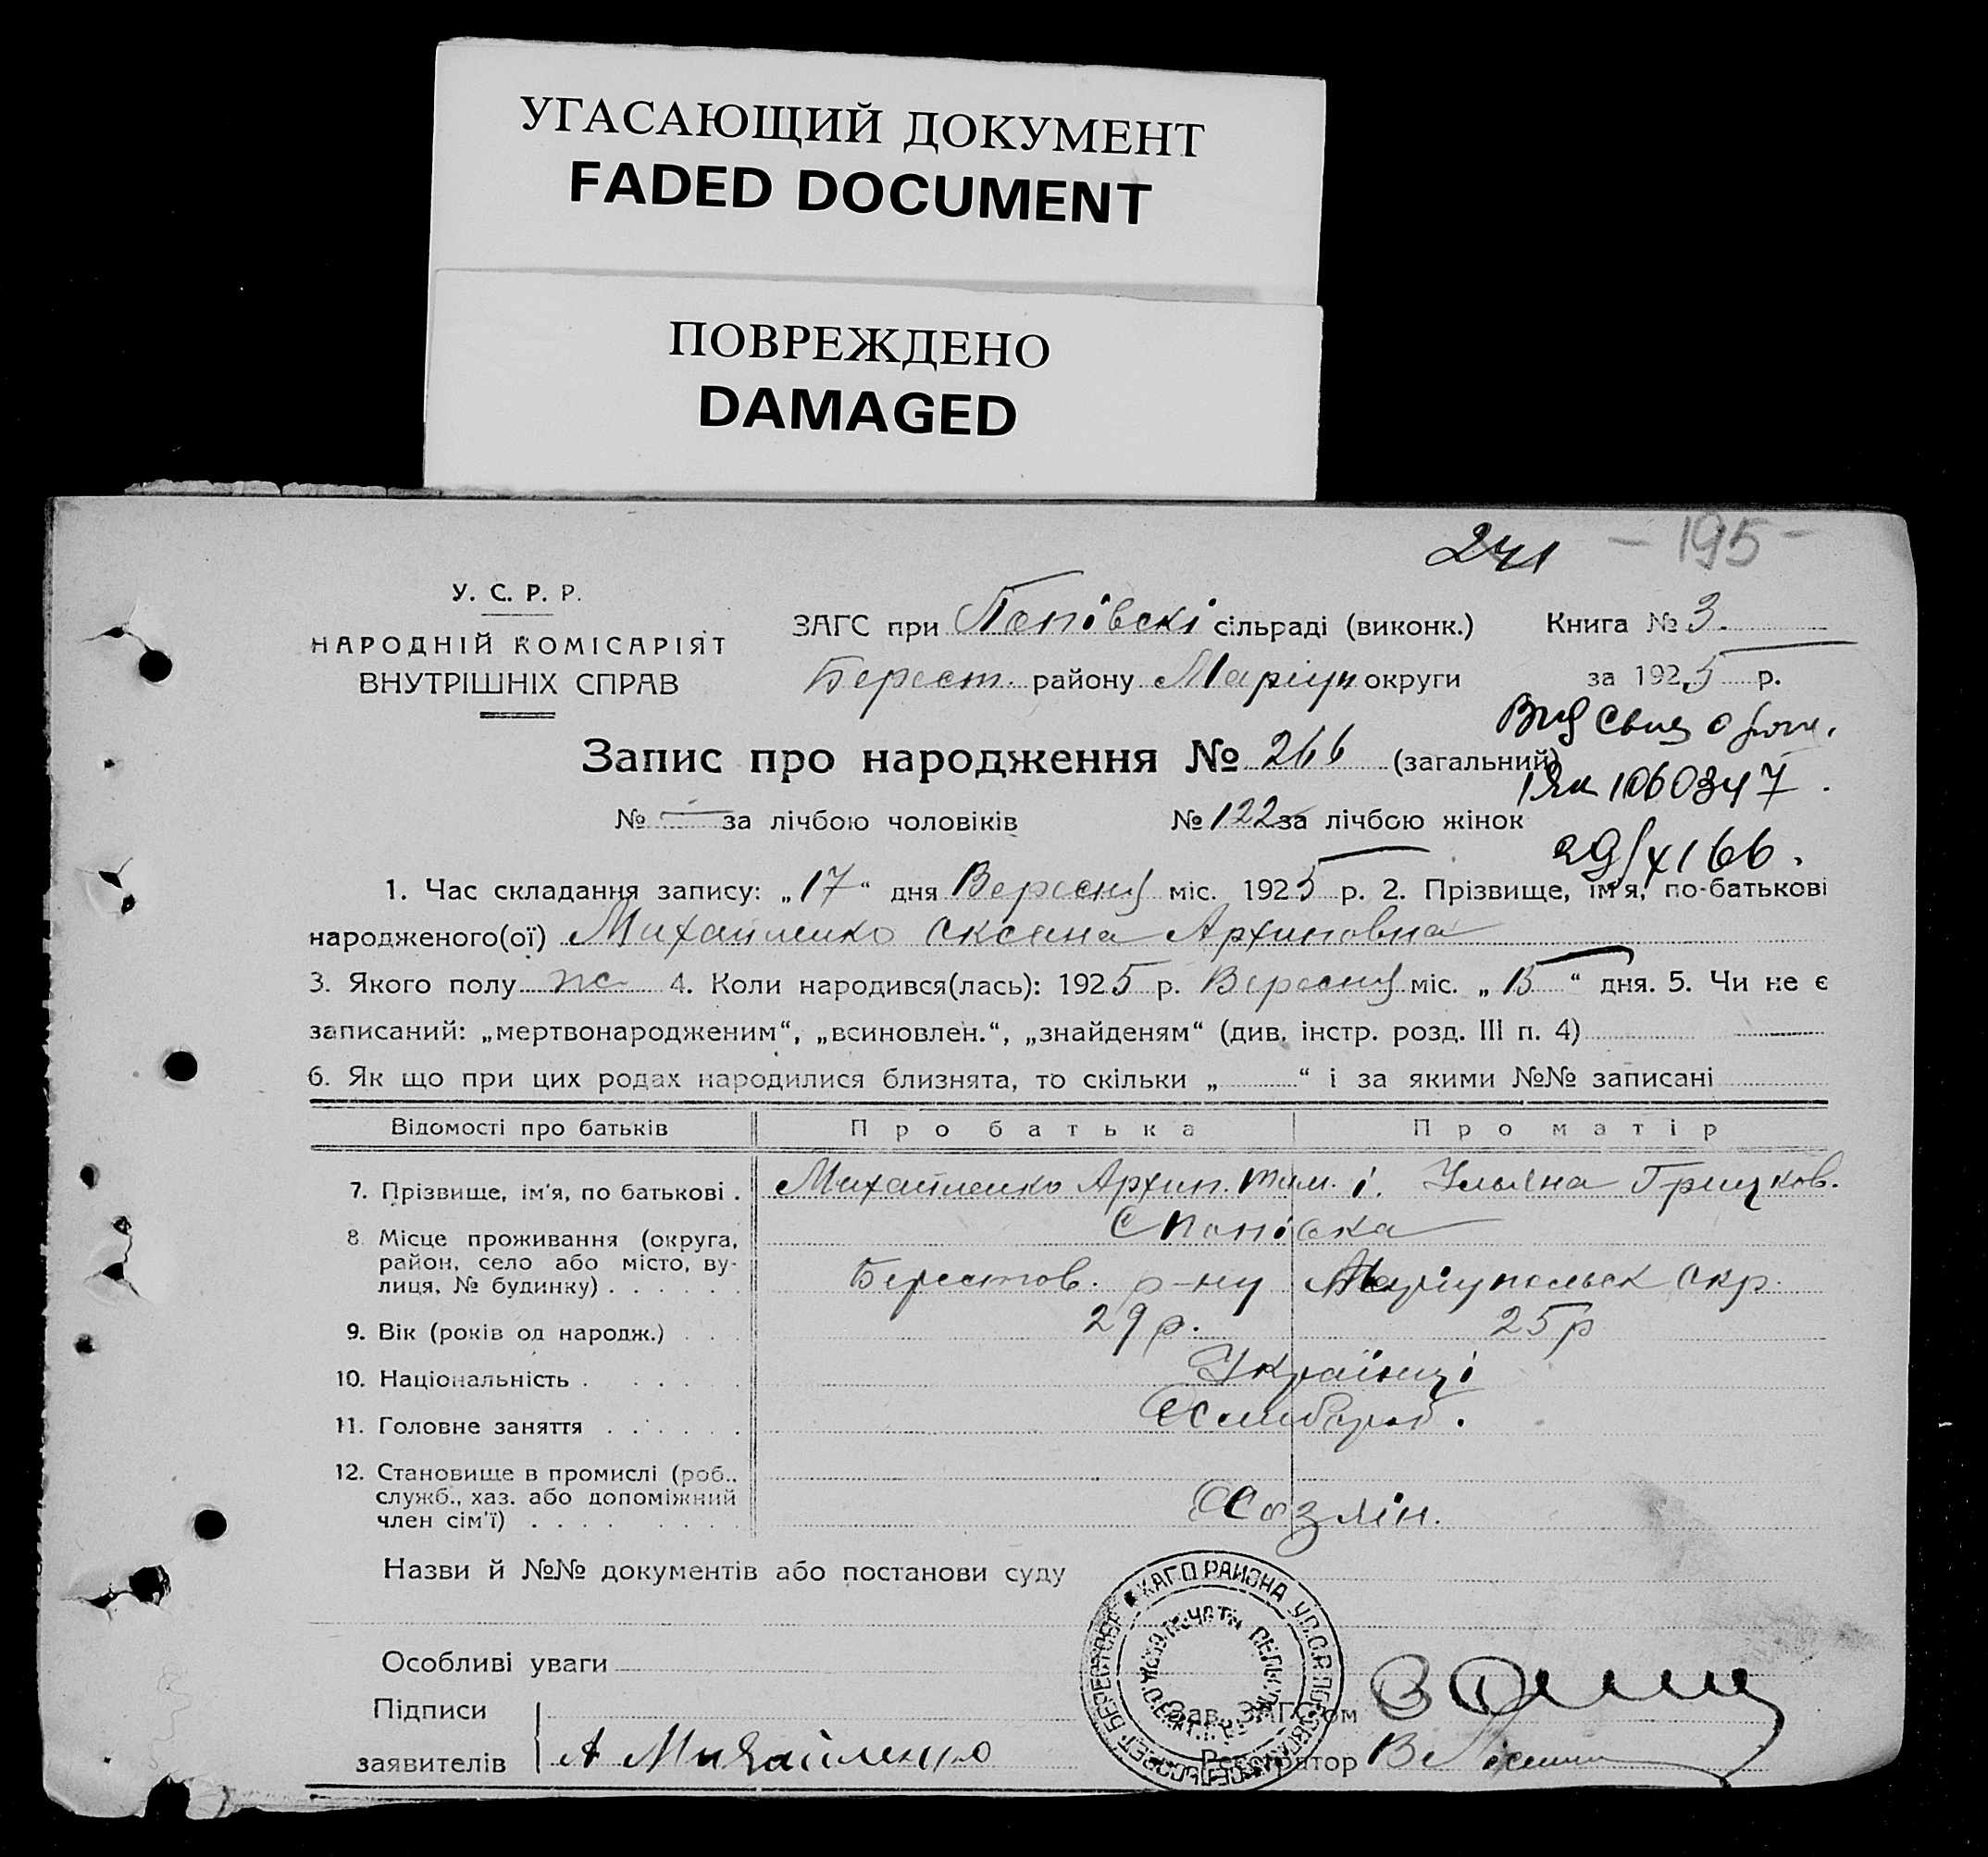 УГАСАЮЩИЙ ДОКУМЕНТ
FADED DOCUMENT
ПОВРЕЖДЕНО
DAMAGED
241 - 195 -
У. С. Р. Р.
НАРОДНІЙ КОМІСАРІЯТ
ВНУТРІШНІХ СПРАВ
ЗАГС при Попівскі сільраді (виконк.) Книга № 3.
Берест. району Маріуп округи за 1925 р.
Запис про народження № 266 (загальний)
Вид свид о
1060347.
№ — за лічбою чоловіків № 122 за лічбою жінок
29/XI 66.
1. Час складання запису: „17“ дня Вересня міс. 1925 р. 2. Прізвище, ім'я, по-батькові
народженого(ої) Михайленко Оксана Архиповна
3. Якого полу ж 4. Коли народився(лась): 1925 р. Вересня міс. „15“ дня. 5. Чи не є
записаний: „мертвонародженим“, „всиновлен.“, „знайденям“ (див. інстр. розд. III п. 4)
6. Як що при цих родах народилися близнята, то скільки „ “ і за якими №№ записані
Відомості про батьків Про батька Про матір
7. Прізвище, ім'я, по батькові . Михайленко Архип. Тим. і. Уляна Грицков.
8 Місце проживання (округа, с Попівка
район, село або місто, ву-
лиця, № будинку) . . . . . . Берестов. р-ну Маріупольск окр.
9. Вік (років од народж.) . . . 29 р. 25 р
10. Національність . . . . . Українці
11. Головне заняття . . . . . . Хлибороб.
12. Становище в промислі (роб.,
служб., хаз. або допоміжний
член сім'ї) . . . . . . . . . Хазяін.
Назви й №№ документів або постанови суду
Особливі уваги
Підписи Зав. ЗАГС'ом
заявителів А Михайленко Реєстратор В